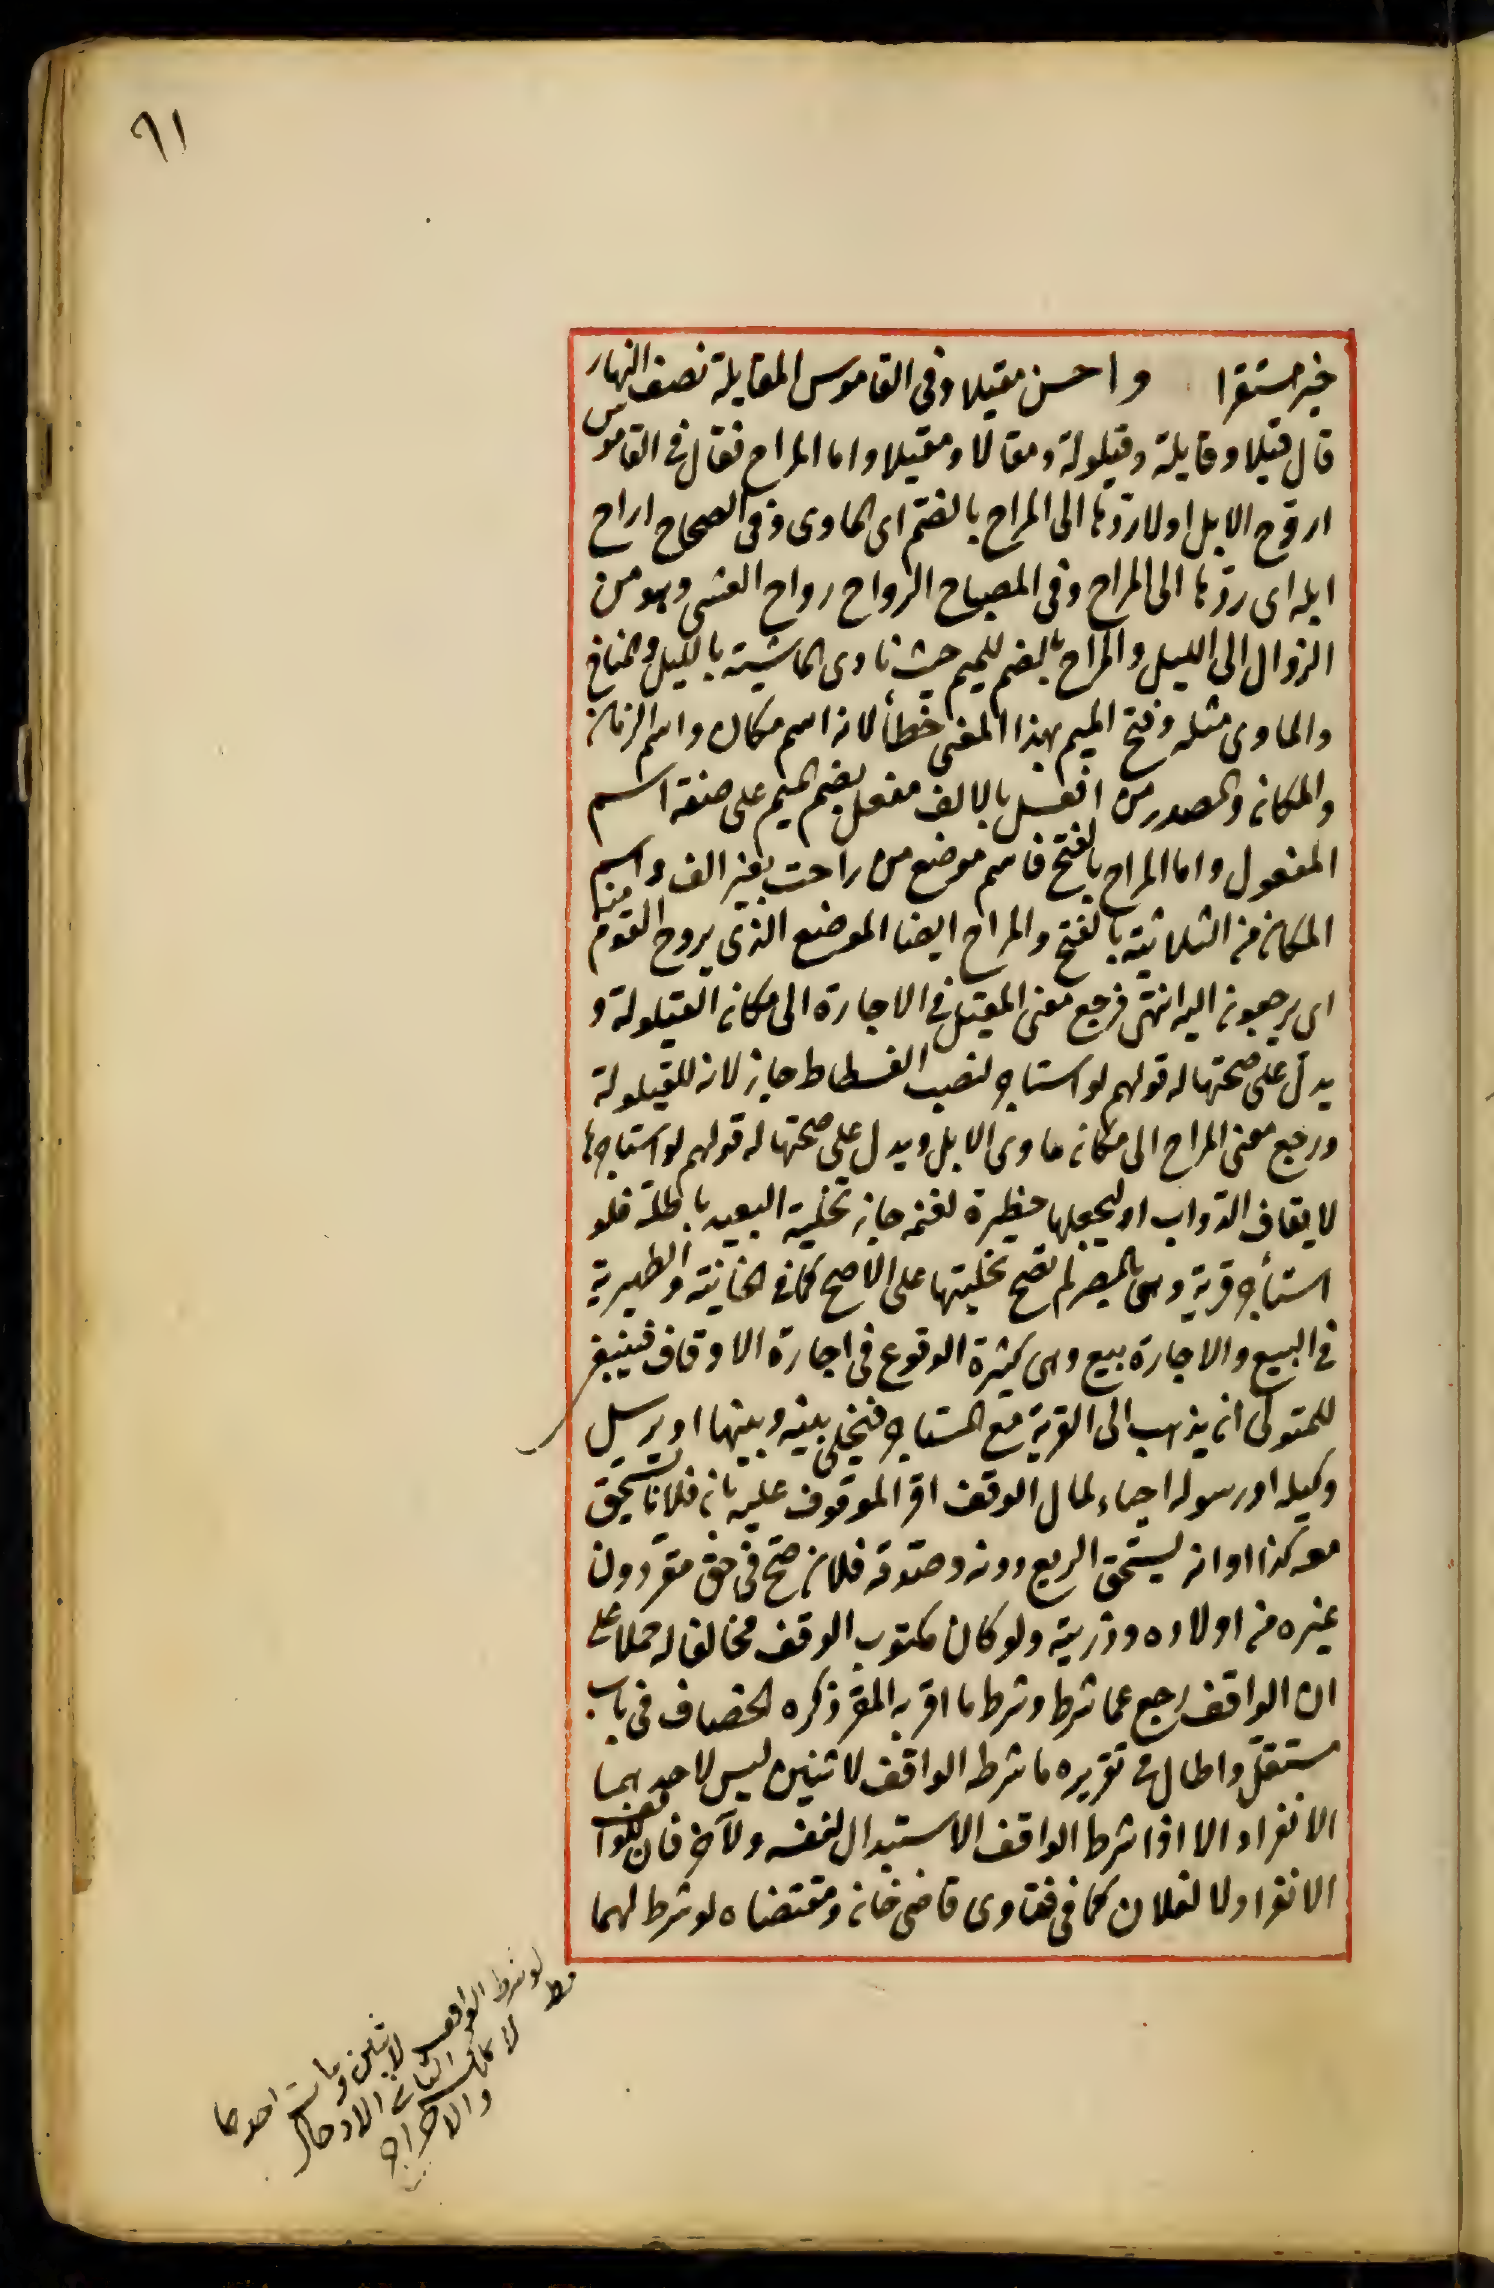 ٩١
خير مستقرا واحسن مقيلا وفي القاموس المقايلة نصف النهار
قال قيلا وقايلة وقيلولة ومقالا ومقيلا واما المراح فقال في القاموس
اروح الابل اولا ردها الى المراح بالضم اى الماوى وفي الصحاح اراح
ابله اى ردها الى المراح وفي المصباح الرواح رواح العشى وهو من
الزوال الى الليل والمراح بالضم للميم حيث تاوى الماشية بالليل والمناخ
والماوى مثله وفتح الميم بهذا المعنى خطأ لانه اسم مكان واسم الزمان
والمكان والمصدر من افعل بالالف مفعل بضم الميم على صنفة اسم
المفعول واما المراح بالفتح فاسم موضع من راحت بغير الف واسم
المكان من الثلاثية بالفتح والمراح ايضا الموضع الذى يروح القوم منه
اى يرجعون اليه انتهى فرجع معنى المقيل في الاجارة الى مكان القيلولة و
يدل على صحتها له قولهم لو استاجر لنصب الفسطاط جاز لانه للقيلولة
ورجع معنى المراح الى مكان ماوى الابل ويدل على صحتها له قولهم لو استاجرها
لايقاف الدواب او ليجعلها حظيرة لغنمه جاز تخلية البعيد باطلة فلو
استأجر قرية وهى بالمصر لم تصح تخليتها على الاصح كما في الخانية والظهيرية
في البيع والاجارة بيع وهى كثيرة الوقوع في اجارة الاوقاف فينبغى
للمتولى ان يذهب الى القرية مع المستاجر فيخلى بينه وبينها او يرسل
وكيله او رسوله احياء لمال الوقف اقر الموقوف عليه بان فلانا يستحق
معه كذا او انه يستحق الريع دونه وصدقه فلان صح في حق مقر دون
غيره من اولاده وذريته ولو كان مكتوب الوقف مخالفا له حملا على
ان الواقف رجع عما شرط وشرط ما اقر به المقر ذكره الخصاف في باب
مستقل واطال في تقريره ما شرطه الواقف لاثنين ليس لاحدهما
الانفراد الا اذا شرط الواقف الاستبدال لنفسه ولآخر فان للواقف
الانفراد لا لفلان كما في فتاوى قاضى خان ومقتضاه لو شرط لهما
لو شرط الواقف لاثنين ومات احدهما
لا يملك الثانى الادخال
والاخراج